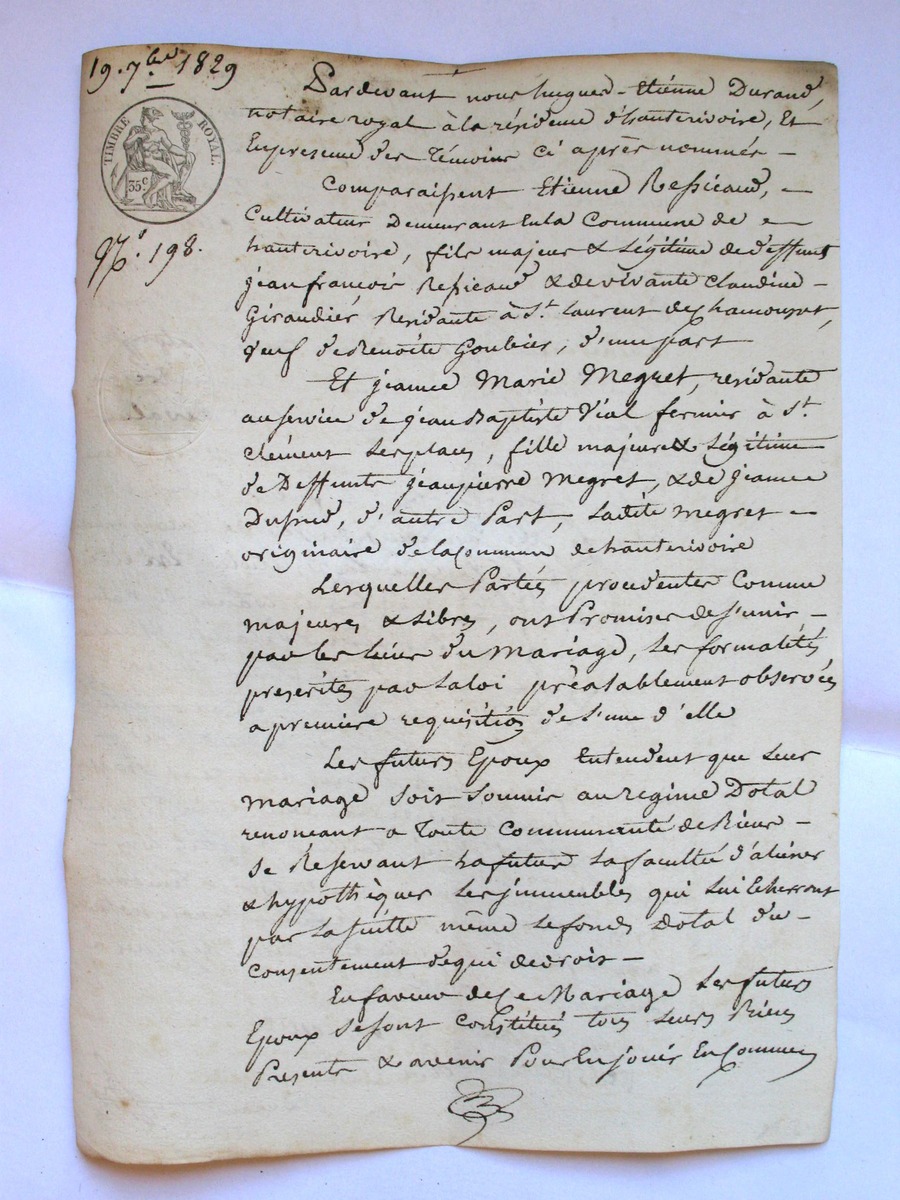 19. 7bre 1829
TIMBRE ROYAL.
35c
N°. 198.
Pardevant nous hugues-Etiénne Durand,
notaire royal à la résidence d'hauterivoire, Et
En presence des témoins ci après nommés -
Comparaissent Etienne Ressicaud, -
Cultivateur Demeurant En la Commune de
hauterivoire, fils majeur & Légitime de deffunt
jean françois Ressicaud & de vivante claudine
Giraudiér Residante à St. laurent de chamousset,
veuf de Benoite Goubier, d'une part
Et jeanne Marie Megret, residante
au service de jean Baptiste Vial fermier à St.
clément les places, fille majeure & Légitime
de Deffunts jean pierre Megret, & de jeanne
Dupud, d'autre Part, Ladite Megret -
originaire de la Commune de hauterivoire
Lesquelles Partiés procedentes Comme
majeures & Libres, ont Promises de s'unir -
par les liens du Mariage, Les formalités
prescrites par La loi préalablement observées
a première requisition de l'une d'elle
Les futurs Epoux Entendent que Leur
mariage soit soumis au regime Dotal
renoncant a Toute Communauté de Biens -
se Reservant La future La faculté d'aliéner
& hypothèquer Les jmmeubles qui Lui Echerront
par La suitte même Le fonds Dotal du -
consentement de qui de droit -
En faveur de Ce Mariage Les futurs
Epoux se sont constitués tous Leurs Biens
Presents & avenir Pour En jouir En Commun